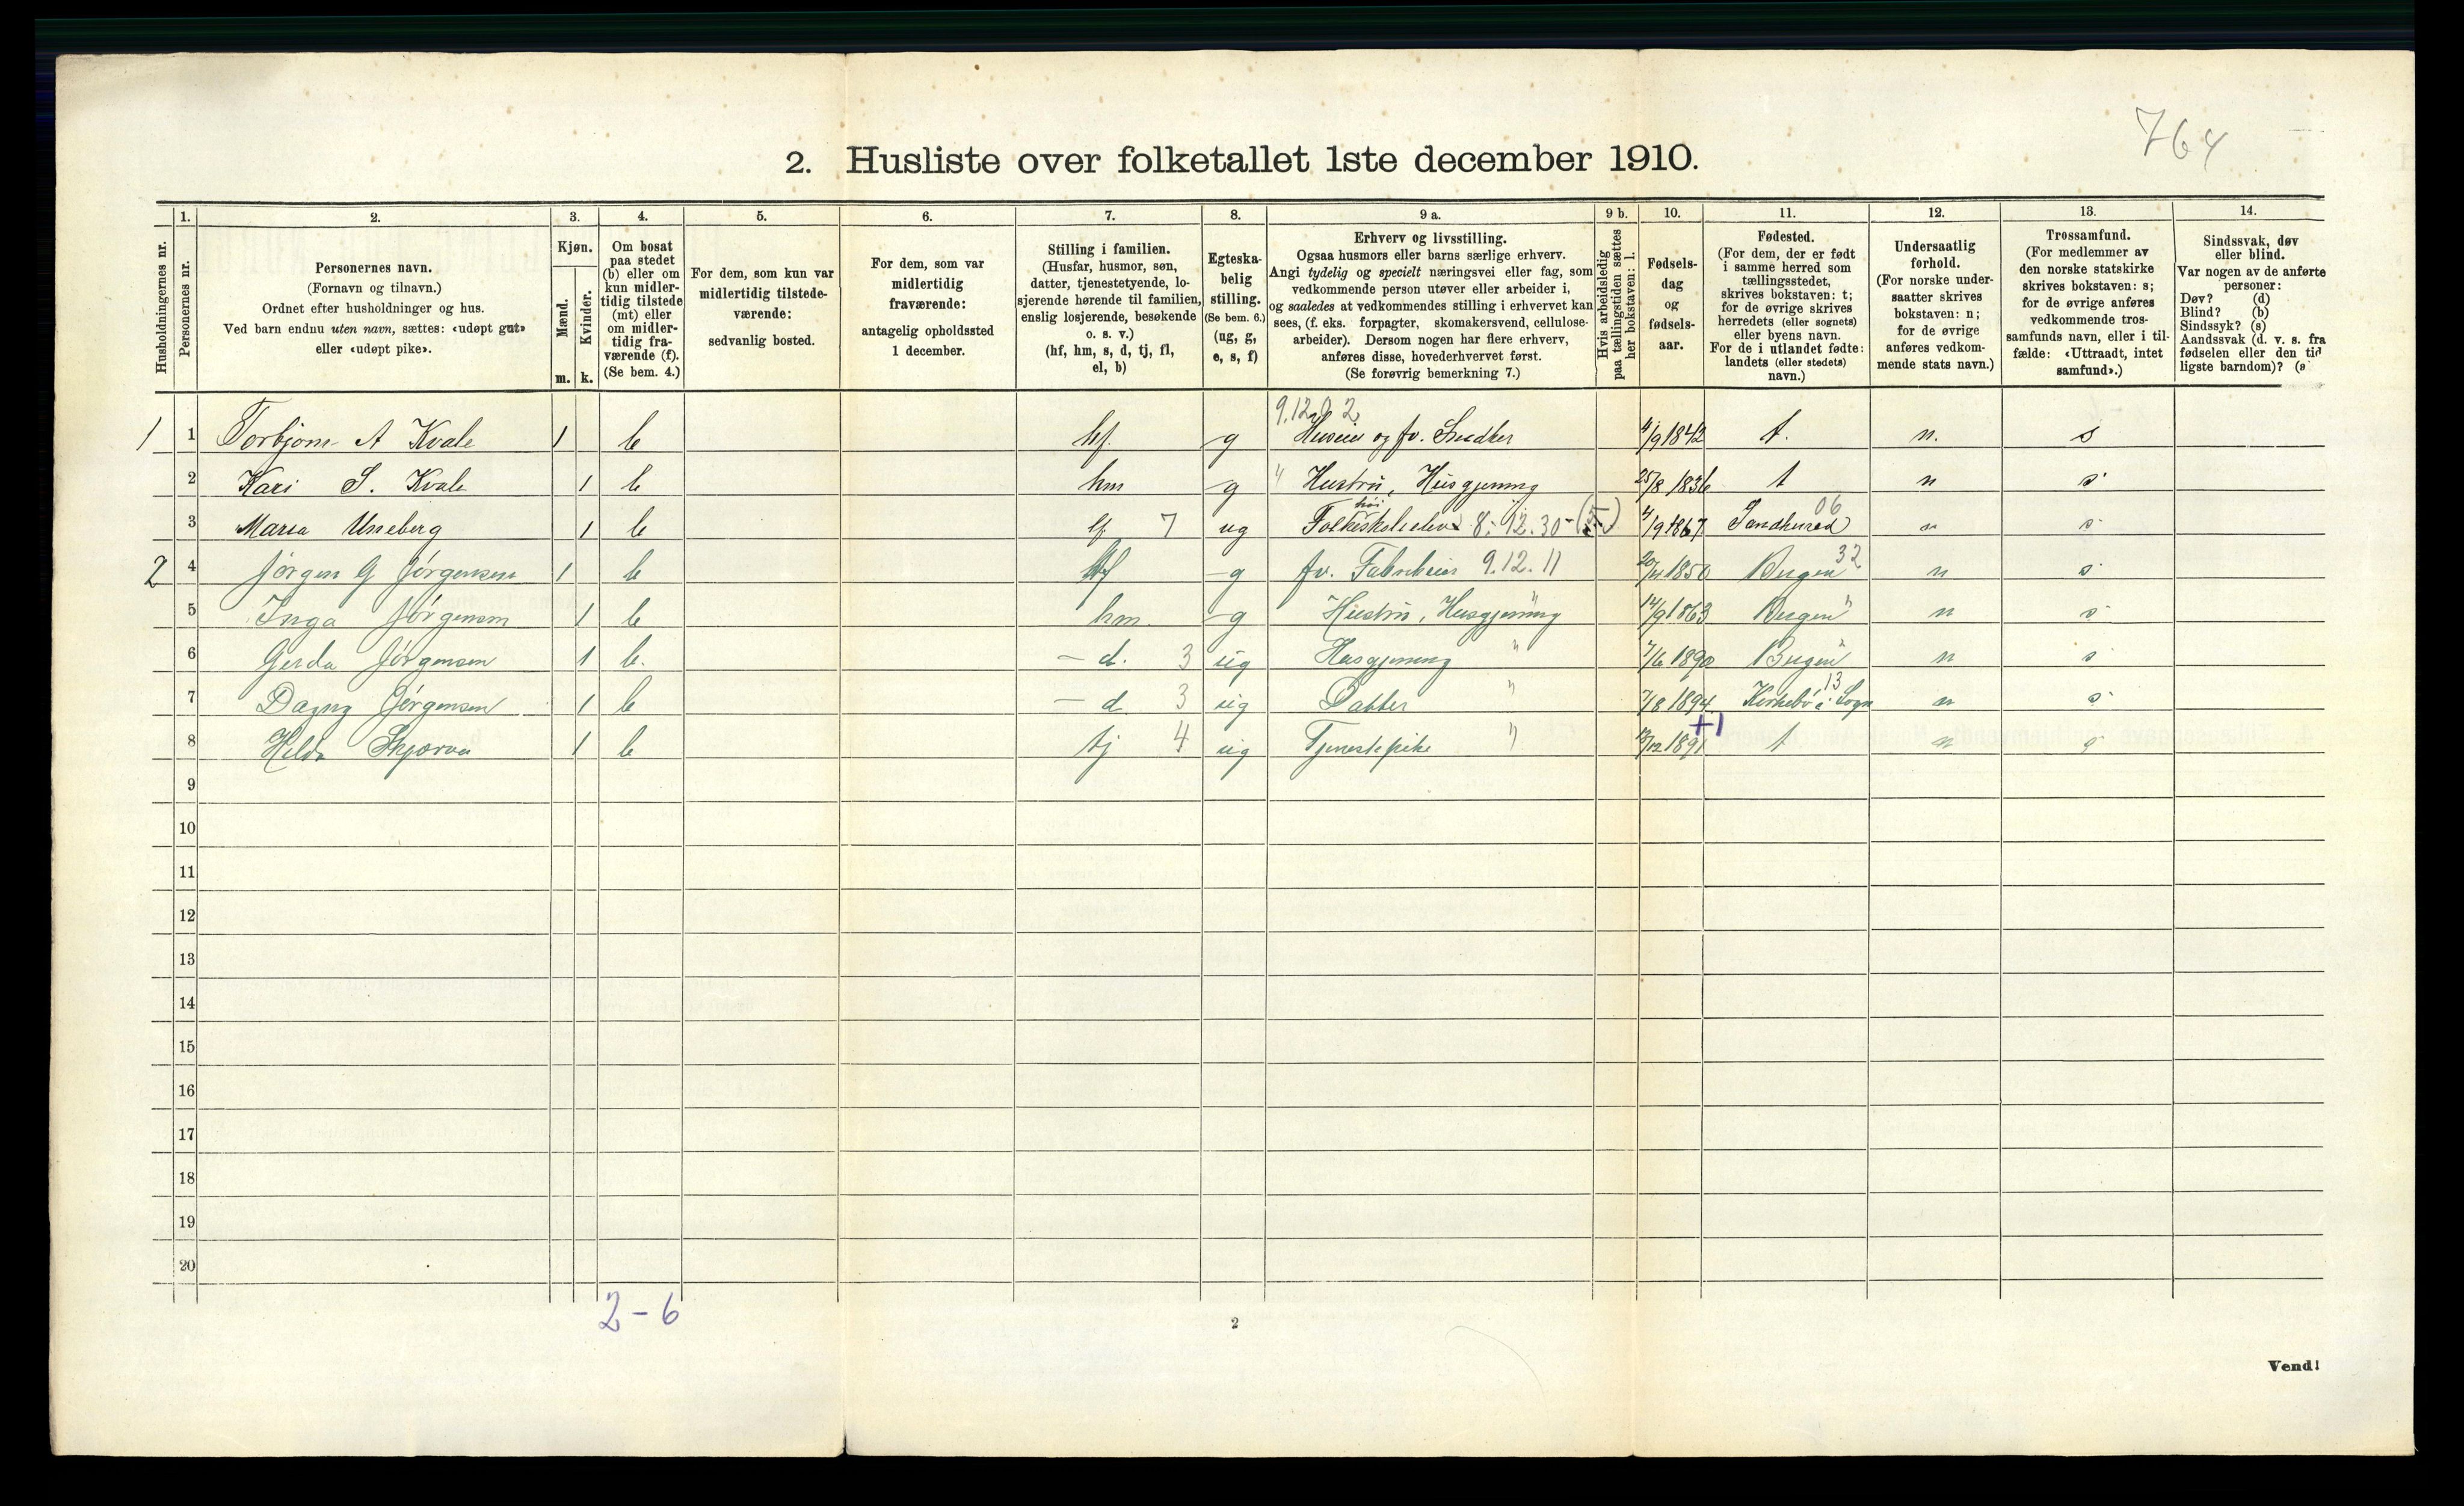 764
2. Husliste over folketallet 1ste december 1910.
1. 2. 3. 4. 5. 6. 7. 8. 9 a. 9 b. 10. 11. 12. 13. 14.
Husholdningernes nr.
Personernes nr.
Personernes navn.
(Fornavn og tilnavn.)
Ordnet efter husholdninger og hus.
Ved barn endnu uten navn, sættes: «udøpt gut»
eller «udøpt pike».
Kjøn.
Mænd.
Kvinder.
m. k.
Om bosat
paa stedet
(b) eller om
kun midler-
tidig tilstede
(mt) eller
om midler-
tidig fra-
værende (f).
(Se bem. 4.)
For dem, som kun var
midlertidig tilstede-
værende:
sedvanlig bosted.
For dem, som var
midlertidig
fraværende:
antagelig opholdssted
1 december.
Stilling i familien.
(Husfar, husmor, søn,
datter, tjenestetyende, lo-
sjerende hørende til familien,
enslig losjerende, besøkende
o. s. v.)
(hf, hm, s, d, tj, fl,
el, b)
Egteska-
belig
stilling.
(Se bem. 6.)
(ug, g,
e, s, f)
Erhverv og livsstilling.
Ogsaa husmors eller barns særlige erhverv.
Angi tydelig og specielt næringsvei eller fag, som
vedkommende person utøver eller arbeider i,
og saaledes at vedkommendes stilling i erhvervet kan
sees, (f. eks. forpagter, skomakersvend, cellulose-
arbeider). Dersom nogen har flere erhverv,
anføres disse, hovederhvervet først.
(Se forøvrig bemerkning 7.)
Hvis arbeidsledig
paa tællingstiden sættes
her bokstaven: l.
Fødsels-
dag
og
fødsels-
aar.
Fødested.
(For dem, der er født
i samme herred som
tællingsstedet,
skrives bokstaven: t;
for de øvrige skrives
herredets (eller sognets)
eller byens navn.
For de i utlandet fødte:
landets (eller stedets)
navn.)
Undersaatlig
forhold.
(For norske under-
saatter skrives
bokstaven: n;
for de øvrige
anføres vedkom-
mende stats navn.)
Trossamfund.
(For medlemmer av
den norske statskirke
skrives bokstaven: s;
for de øvrige anføres
vedkommende tros-
samfunds navn, eller i til-
fælde: «Uttraadt, intet
samfund».)
Sindssvak, døv
eller blind.
Var nogen av de anførte
personer:
Døv? (d)
Blind? (b)
Sindssyk? (s)
Aandssvak (d. v. s. fra
fødselen eller den tid
ligste barndom)? (s
9.12.02
1 1 Torbjørn A Kvale 1 b hf. g Huseier og fv. Snedker 4/9 1842 t. n. s
2 Kari S. Kvale 1 b hm g " Hustru, Husgjerning 25/8 1836 t n s
3 Maria Uneberg 1 b 7 ug 8.12.30 4/9 1867 06 n s
2 4 Jørgen G Jørgensen 1 b hf g fv. Fabrikeier 9.12.11 1850 Bergen 32 n s
5 Inga Jørgensen 1 b hm g Hustru, Husgjerning " 14/9 1863 Bergen " n s
6 Gerda Jørgensen 1 b. - d. 3 ug Husgjerning " 7/6 1890 Bergen " n s
7 Dagny Jørgensen 1 b - d 3 ug Datter " 7/8 1894 Kirkebø i Sogn 13 n s
+1
8 Hilda 1 b tj 4 ug Tjenestepike " 1891 t n s
9
10
11
12
13
14
15
16
17
18
19
20
2-6
2
Vend!